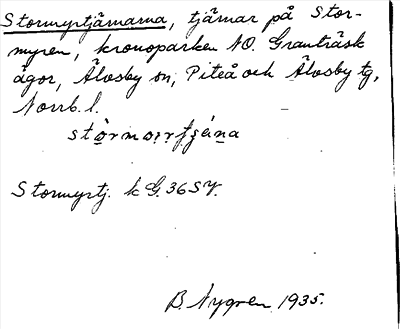 Stormyrtjärnarna, tjärnar på Stor-
myren, kronoparken NO. Granträsk
ägor, Älvsby sn, Piteå och Älvsby tg,
Norrb. l.
Stormyrtj. k G. 36 SV.
B. Nygren 1935.